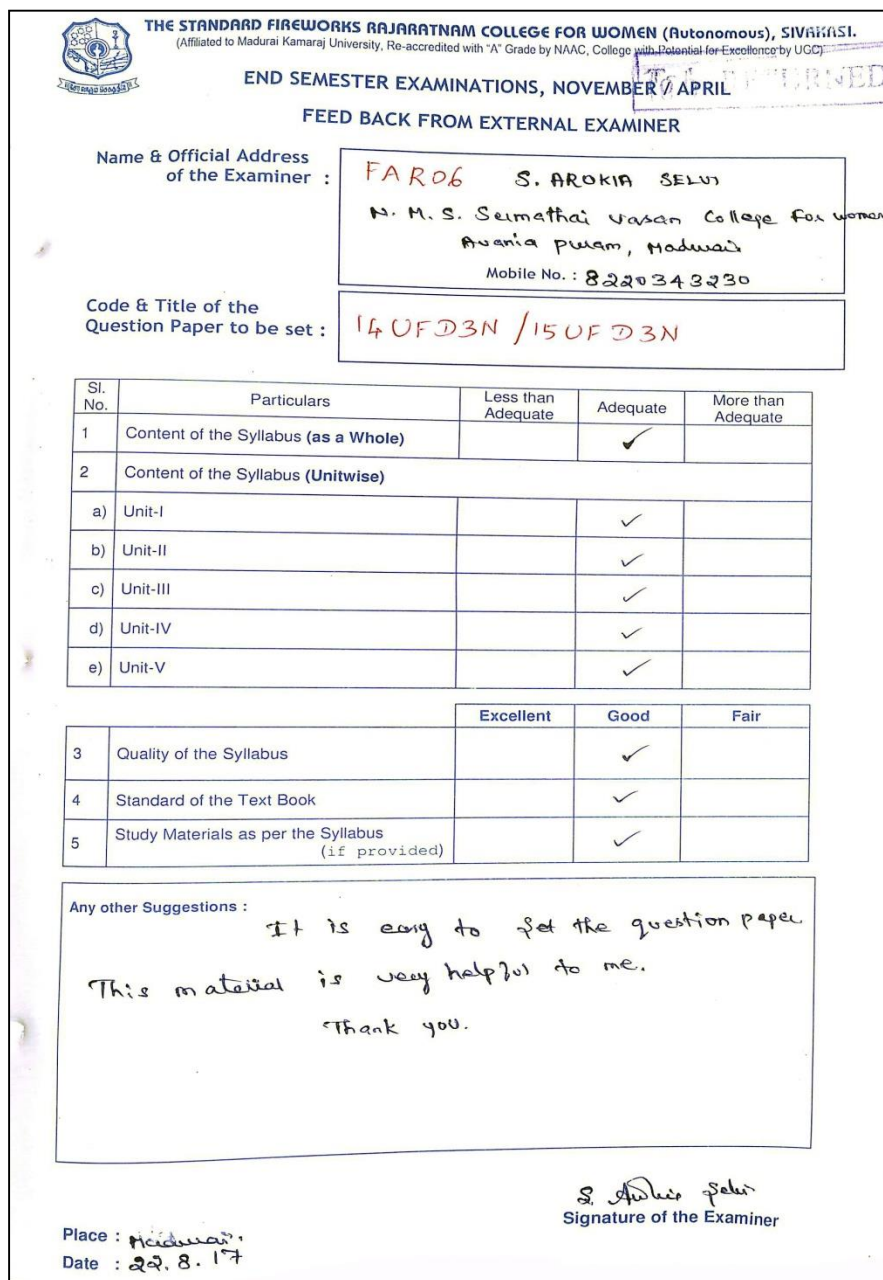 THE STANDARD FIREWORKS RAJARATNAM COLLEGE FOR WOMEN (Autonomous), SIVAKASI.
(Affiliated to Madurai Kamaraj University, Re-accredited with "A" Grade by NAAC, College with Potential for Excellence by UGC)
END SEMESTER EXAMINATIONS, NOVEMBER / APRIL
FEED BACK FROM EXTERNAL EXAMINER
Name & Official Address
of the Examiner :
FAR06 S. AROKIA SELVI
N. M. S. Sermathai vasan College for women
Avania puram, Madurai
Mobile No. : 8220343230
Code & Title of the
Question Paper to be set :
14UFD3N /15UFD3N
Sl. No. Particulars Less than Adequate Adequate More than Adequate
1 Content of the Syllabus (as a Whole) ✓
2 Content of the Syllabus (Unitwise)
a) Unit-I ✓
b) Unit-II ✓
c) Unit-III ✓
d) Unit-IV ✓
e) Unit-V ✓
Excellent Good Fair
3 Quality of the Syllabus ✓
4 Standard of the Text Book ✓
5 Study Materials as per the Syllabus ✓
(if provided)
Any other Suggestions :
It is easy to set the question paper
This material is very helpful to me.
Thank you.
Signature of the Examiner
Place : Madurai.
Date : 22.8.17